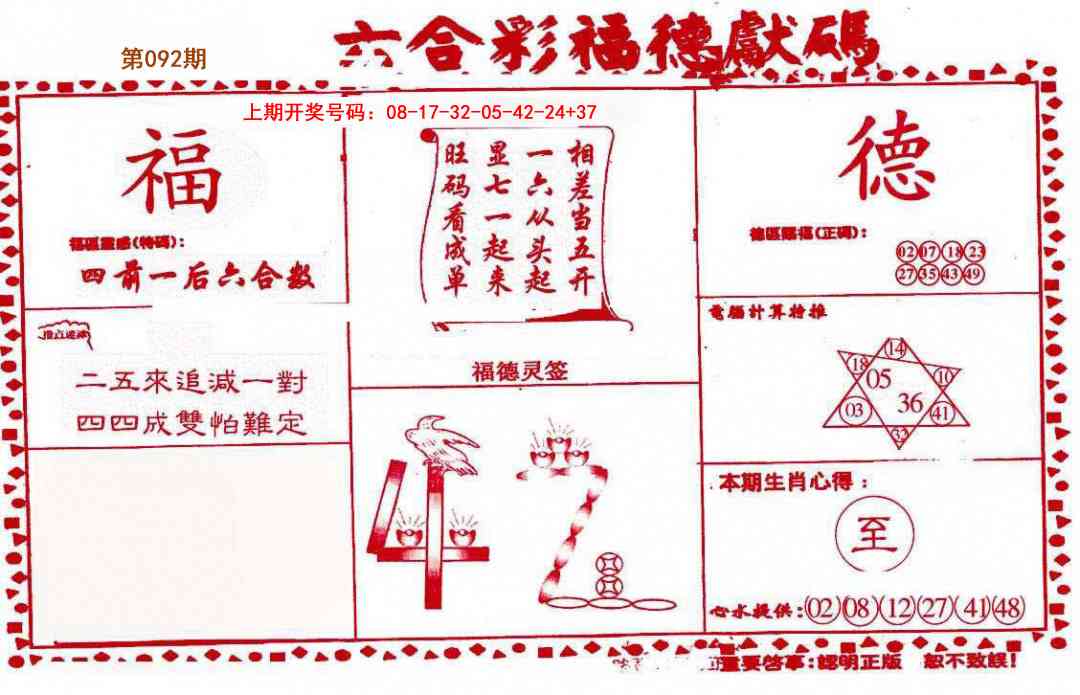 第092期
六合彩福德獻碼
上期开奖号码：08-17-32-05-42-24+37
福
福區靈感(特碼)：
四前一后六合数
二五來追減一對
四四成雙怕難定
相差当五开
一六从头起
显七一起来
旺码看成单
福德灵签
42
德
德區賜福(正碼)：
02 07 18 23
27 35 43 49
電腦計算特推
14
18 10
05
36
03 41
32
本期生肖心得：
至
心水提供：02 08 12 27 41 48
重要啓事：認明正版 恕不致誤！